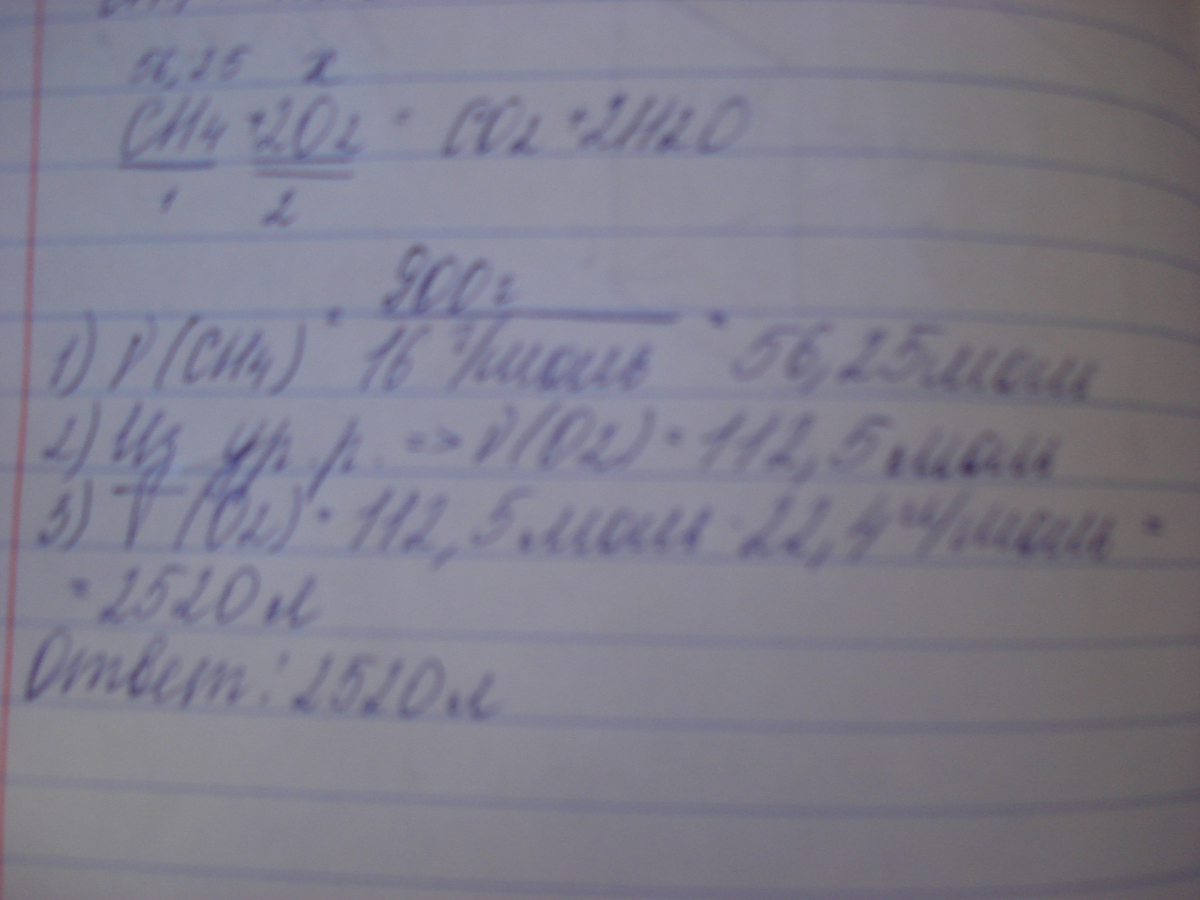 56,25 x
CH4 + 2O2 = CO2 + 2H2O
1 2
900г
1) ν(CH4) = 16 г/моль = 56,25 моль
2) Из ур. р. => ν(O2) = 112,5 моль
3) V(O2) = 112,5 моль · 22,4 л/моль =
= 2520 л
Ответ: 2520 л